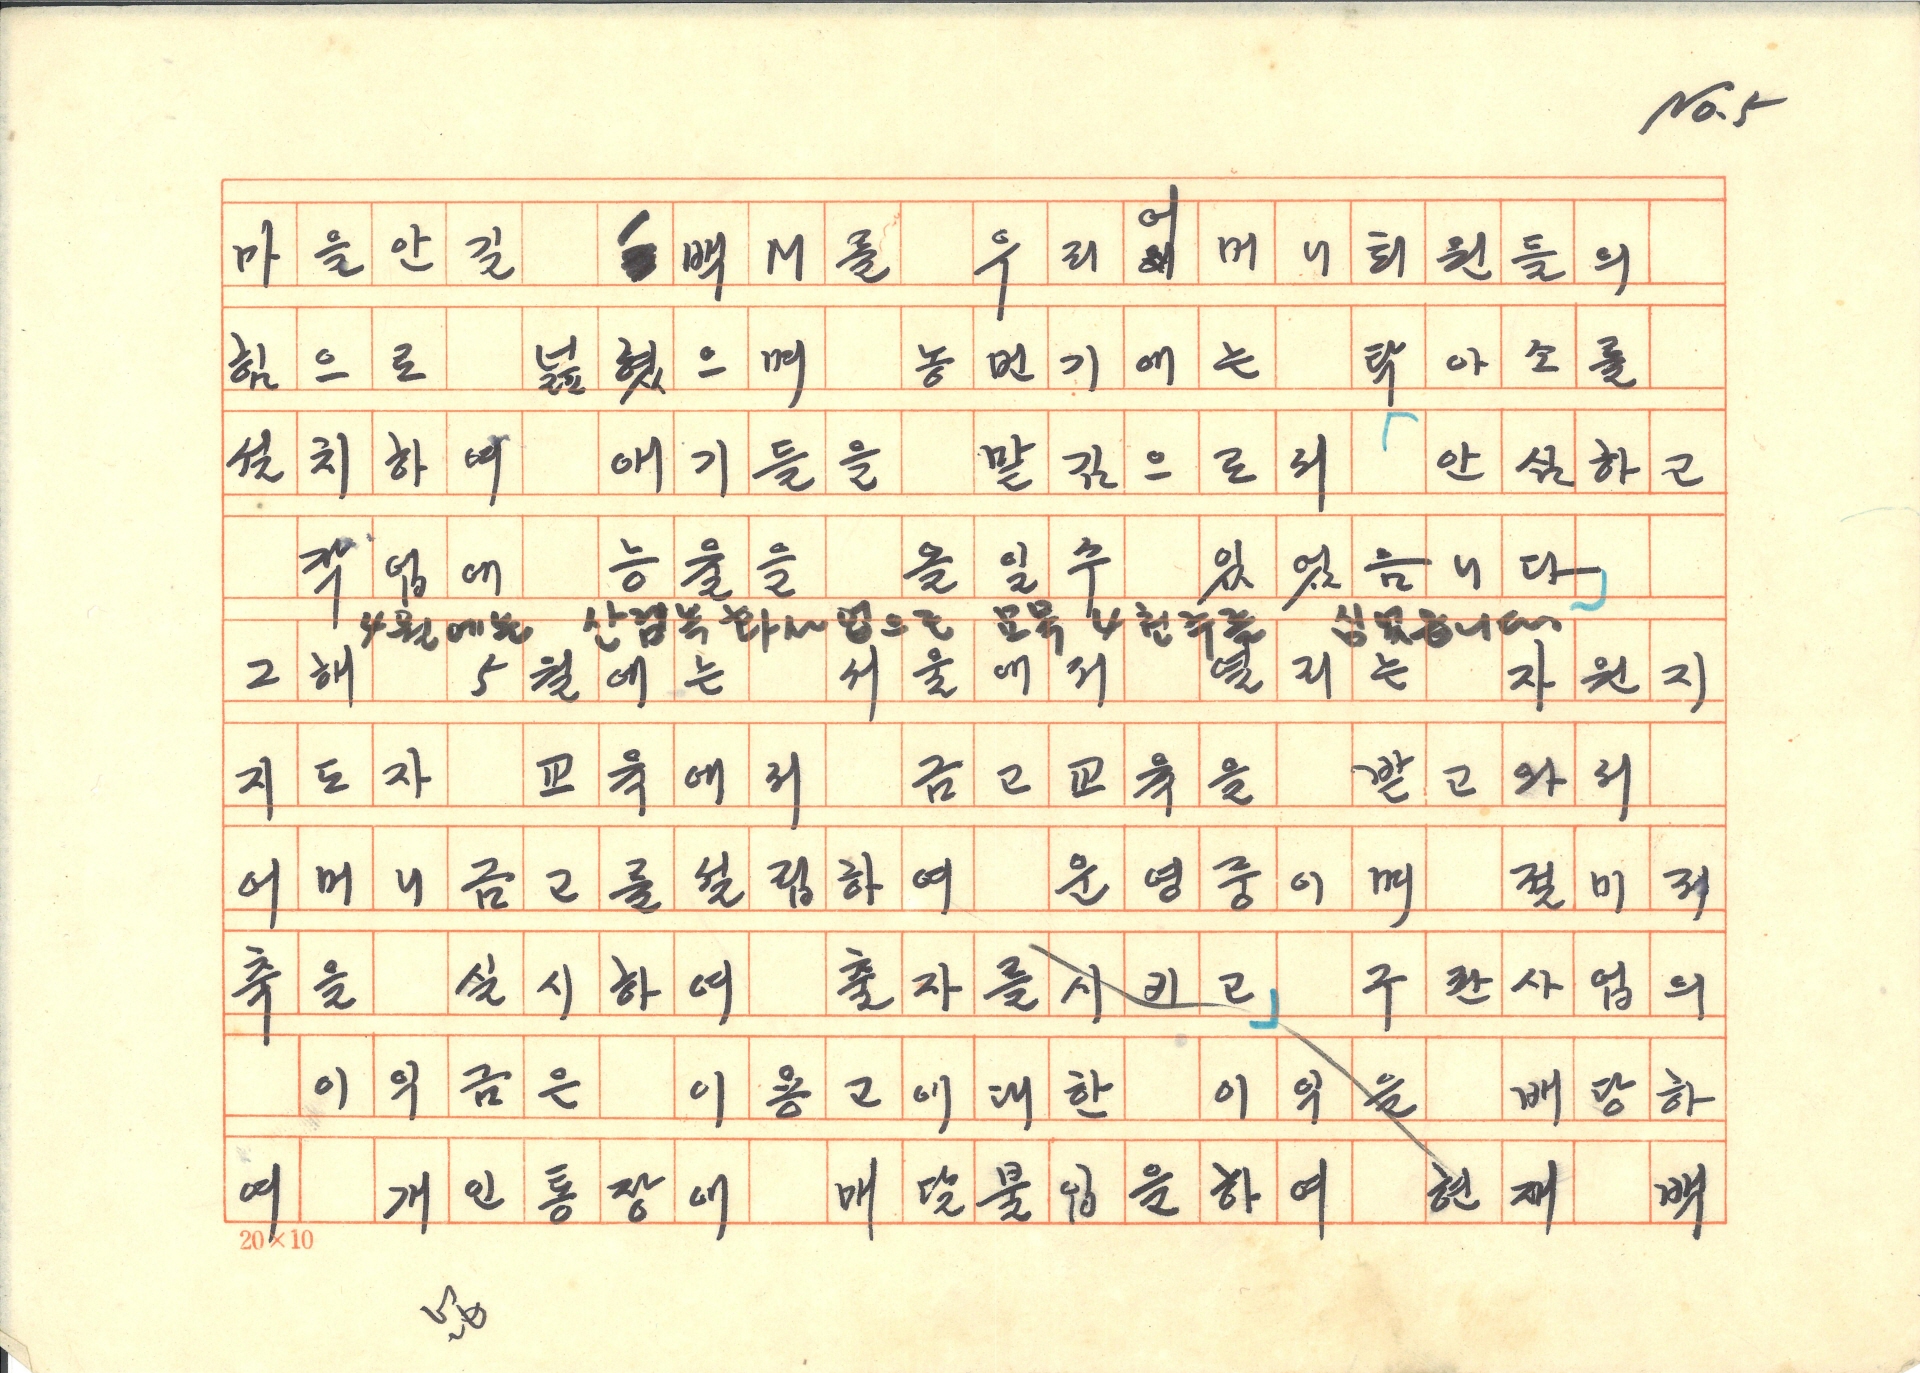 No. 5
마을안길 백M를 우리어머니회원들의
힘으로 넓혔으며 농번기에는 탁아소를
설치하여 애기들을 맡김으로서 「안심하고
작업에 능율을 올일수 있었습니다」
4월에는 산림녹화사업으로 묘목 4천주를 심었습니다
그해 5월에는 서울에서 열리는 자원지
지도자 교육에서 금고교육을 받고와서
어머니금고를설립하여 운영중이며 절미저
축을 실시하여 출자를시키고」 구판사업의
이익금은 이용고에대한 이익을 배당하
여 개인통장에 매달불입을하여 현재 백
20×10